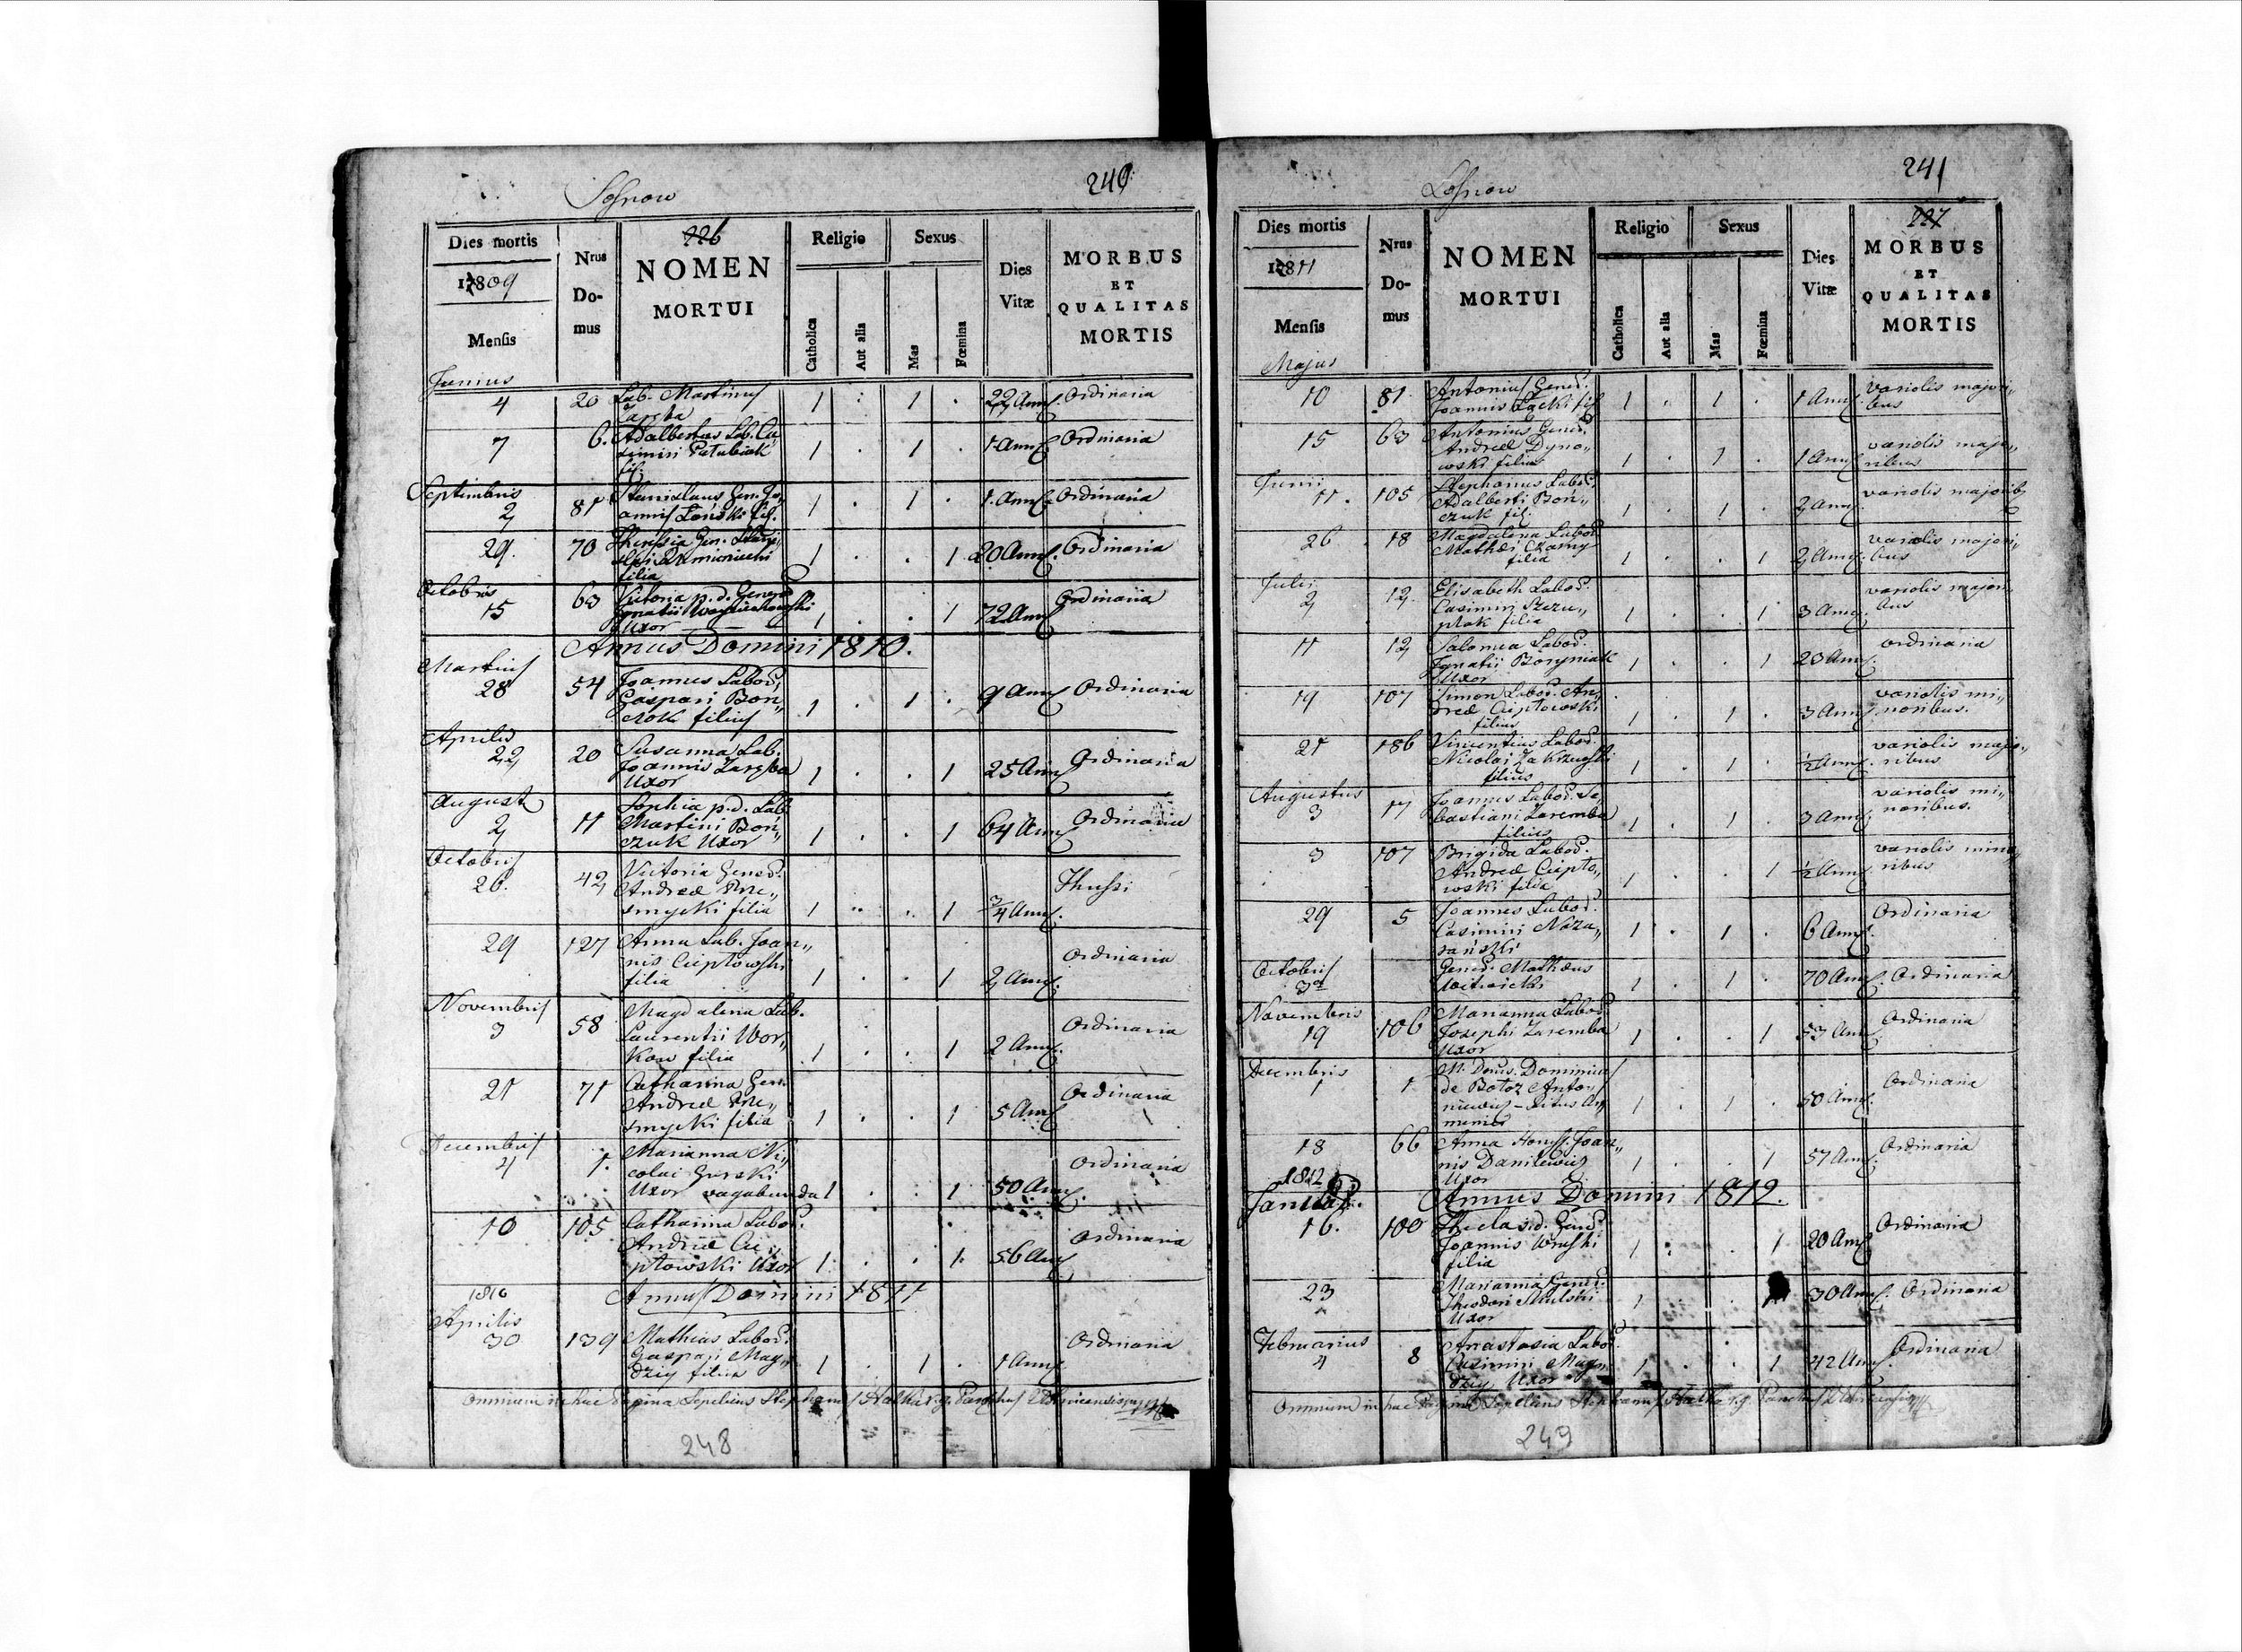 Sosnow
240
Dies mortis
1809
Mensis
Nrus
Do-
mus
226
NOMEN
MORTUI
Religio
Catholica
Aut alia
Sexus
Mas
Fœmina
Dies
Vitæ
MORBUS
ET
QUALITAS
MORTIS
Junius
4 20 Lab. Martinus 1 . 1 . 22 Ann. Ordinaria
Zaręba
7 6. Adalbertus Lab. Ca 1 . 1 . 1 Ann. Ordinaria
simiri
fil.
Septembris
2 81 Stanislaus Gen. Jo„ 1 . 1 . 1. Ann. Ordinaria
annis Łoński fil.
29. 70 Theresia Gen. 1 . . 1 20 Ann. Ordinaria
filia
Octobris
15 63 Victoria p.d. Generos 1 . . 1 72 Ann. Ordinaria
Ignatii Woyciechowski
Uxor
Annus Domini 1810.
Martius
28 54 Joannes Labor. 1 . 1 . 9 Ann. Ordinaria
Gaspari Bon„
czok filius
Aprilis
22 20 Susanna Lab. 1 . . 1 25 Ann. Ordinaria
Joannis Zaręba
Uxor
August
2 11 Sophia p.d. Lab. 1 . . 1 64 Ann. Ordinaria
Martini Boń„
czuk Uxor
Octobris
26. 42 Victoria Generos. 1 . . 1 3/4 Ann. Thussi
Andreæ Prze„
smycki filia
29 127 Anna Lab. Joan„ 1 . . 1 2 Ann. Ordinaria
nis Cieptowski
filia
Novembris
3 58 Magdalena Lab. 1 . . 1 2 Ann. Ordinaria
Laurentii Wor„
kow filia
21 71 Catharina Gen. 1 . . 1 5 Ann. Ordinaria
Andreæ Prze„
smycki filia
Decembris
4 1. Marianna Ni„ 1 . . 1 50 Ann. Ordinaria
colai Gurski
Uxor vagabunda
10 105 Catharina Labor. 1 . . 1. 56 Ann. Ordinaria
Andreæ Cie„
ptowski Uxor
1810 Annus Domini 1811
Aprilis
30 139 Mathias Labor. 1 . 1 . 1 Ann. Ordinaria
Gaspari Mag„
dziy filius
Omnium in hac Pagina Sepeliens Stephanus Halka
248
Losnow
241
Dies mortis
1811
Mensis
Nrus
Do-
mus
NOMEN
MORTUI
Religio
Catholica
Aut alia
Sexus
Mas
Fœmina
Dies
Vitæ
227
MORBUS
ET
QUALITAS
MORTIS
Majus
10 81 Antonius Generos. 1 . 1 . 1 Ann. variolis majori„
Joannis Łącki fil. bus
15 63 Antonius Generos. 1 . 1 . 1 Ann. variolis majo„
Andreæ Dyno„ ribus
wski filius
Junii
11. 105 Stephanus Labor. 1 . 1 . 2 Ann. variolis majorib.
Adalberti Boń„
czuk fil.
26 18 Magdalena Labor. 1 . . 1 2 Ann. variolis majori„
Mathæi Czarny bus
filia
Julii
2 12 Elisabeth Labor. 1 . . 1 3 Ann. variolis majori„
Casimiri Szczu„ bus
ptak filia
11 12 Salomea Labor. 1 . . 1 23 Ann. Ordinaria
Ignatii Boryniak
Uxor
19 107 Simon Labor. An„ 1 . 1 . 3 Ann. variolis mi„
dreæ Cieptowski noribus.
filius
21 186 Vincentius Labor. 1 . 1 . 1/2 Ann. variolis majo„
Nicolai Zakrzewski ribus
filius
Augustus
3 17 Joannes Labor. Se„ 1 . 1 . 3 Ann. variolis mi„
bastiani Zaremba noribus.
filius
3 107 Brigida Labor. 1 . . 1 1/2 Ann. variolis mino„
Andreæ Ciepto„ ribus
wski filia
29 5 Joannes Labor. 1 . 1 . 6 Ann. Ordinaria
Casimiri Naza„
rański
Octobris
3a Generos. Mathæus 1 . 1 . 70 Ann. Ordinaria
Woitwicki
Novembris
19 106 Marianna Labor. 1 . . 1 53 Ann. Ordinaria
Josephi Zaremba
Uxor
Decembris
1 1 M. Dnus. Dominicus 1 . 1 . 50 Ann. Ordinaria
de Botoz Anto„
niewicz – Ritus Ar„
menici
18 66 Anna Honest. Joan„ 1 . . 1 57 Ann. Ordinaria
nis Danilewicz
Uxor
1812
Januar. Annus Domini 1812.
16. 100 Thecla s.d. Generos. 1 . . 1 20 Ann. Ordinaria
Joannis
filia
23 Marianna Generos. 1 . . 1 30 Ann. Ordinaria
Theodori Skulski
Uxor
Februarius
4 8 Anastasia Labor. 1 . . 1 42 Ann. Ordinaria
Casimiri Mag„
dziy Uxor
Omnium in hac Pagina Sepeliens Stephanus Halka
249